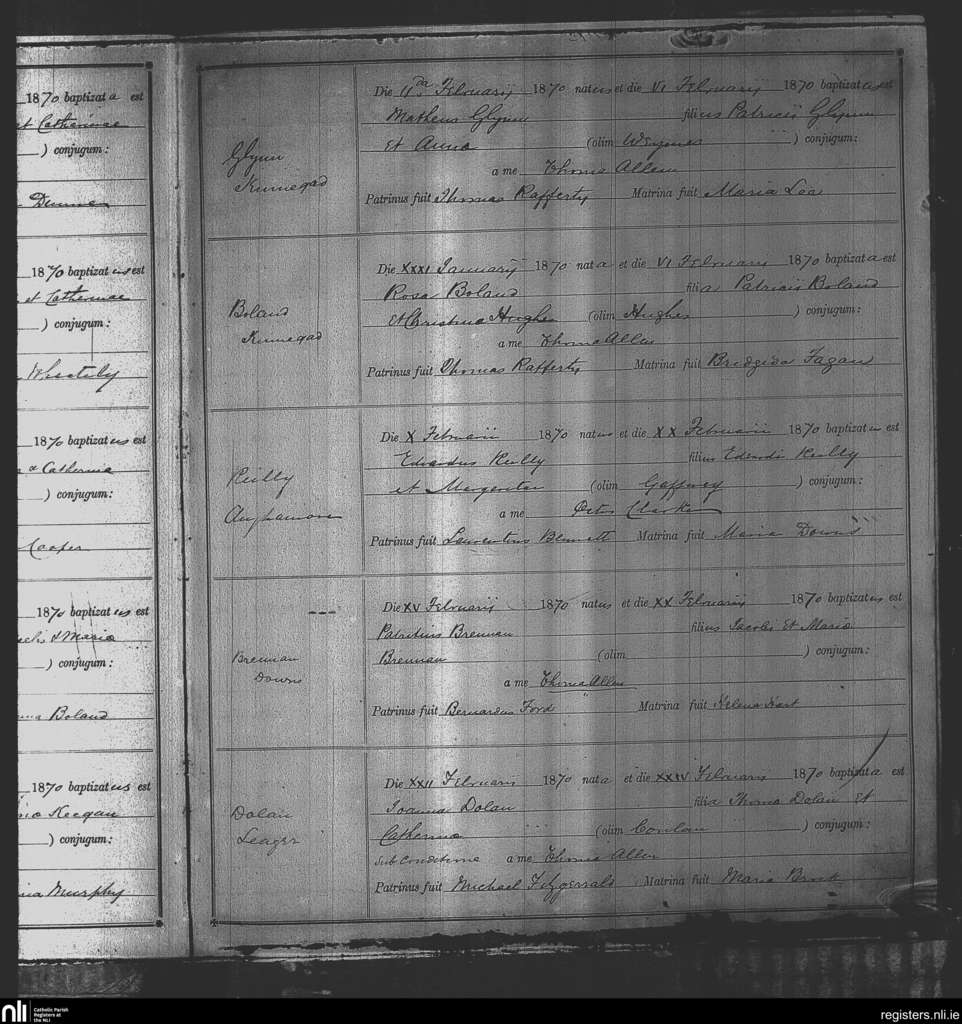 1870 baptizata est
et Catherinae
) conjugum:
Dunne
1870 baptizatus est
et Catherinae
) conjugum:
Wheatily
1870 baptizatus est
& Catherina
) conjugum:
Cooper
1870 baptizatus est
& Maria
) conjugum:
Boland
1870 baptizatus est
Keegan
) conjugum:
Murphy
Glynn
Kinnegad
Die 11da Februarij 1870 natus et die VI Februarij 1870 baptizatus est
Matheus Glynn filius Patricii Glynn
et Anna (olim ) conjugum:
a me Thoma Allen
Patrinus fuit Thomas Rafferty Matrina fuit Maria Lea
Boland
Kinnegad
Die XXXI Januarij 1870 nata et die VI Februarii 1870 baptizata est
Rosa Boland filia Patricii Boland
et Christina Hughes (olim Hughes ) conjugum:
a me Thoma Allen
Patrinus fuit Thomas Rafferty Matrina fuit Bridgida Fagan
Reilly
Aughamore
Die X Februarii 1870 natus et die XX Februarii 1870 baptizatus est
Edwardus Reilly filius Edwardi Reilly
et Margerita (olim Gaffney ) conjugum:
a me Petro Clarke
Patrinus fuit Laurentius Bennett Matrina fuit Maria Downs
Brennan
Downs
Die XV Februarij 1870 natus et die XX Februarij 1870 baptizatus est
Patritius Brennan filius Jacobi Et Maria
Brennan (olim ) conjugum:
a me Thoma Allen
Patrinus fuit Bernardus Ford Matrina fuit Helena
Dolan
Leager
Die XXII Februarii 1870 nata et die XXIV Februarii 1870 baptizata est
Joanna Dolan filia Thoma Dolan Et
Catherina (olim Conlan ) conjugum:
sub conditione a me Thoma Allen
Patrinus fuit Michael Fitzgerrald Matrina fuit Maria
nli
Catholic Parish
Registers at
the NLI
registers.nli.ie